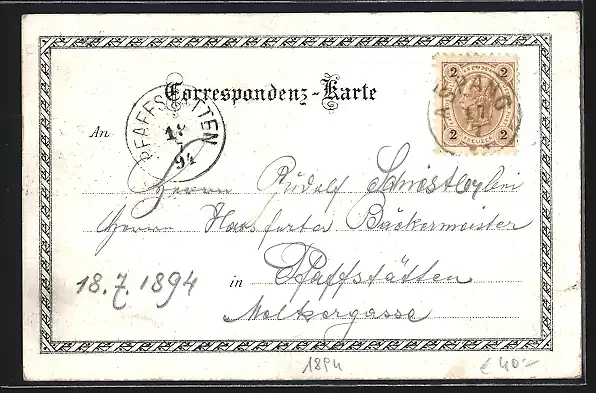 Correspondenz-Karte
2 2
2 2
KREUZER
ASPANG
PFAFFSTÄTTEN
18
7
94
An
Herrn Rudolf
Herrn Bäckermeister
18.7.1894
in Pfaffstätten
Melkergasse
1894
€ 40.-